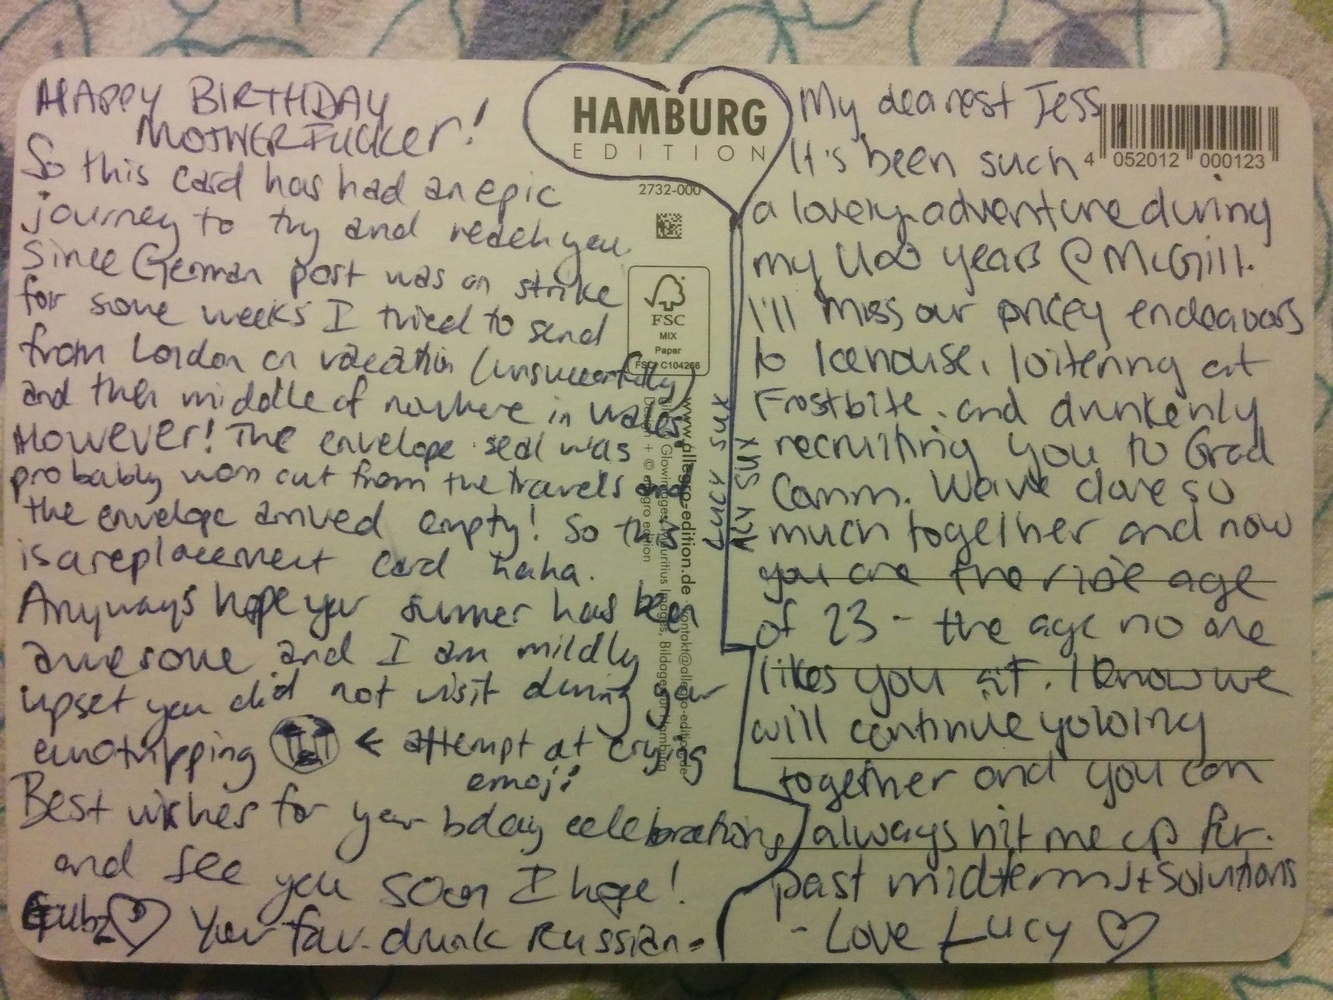 HAPPY BIRTHDAY
MOTHERFUCKER!
So this card has had an epic
journey to try and reach you
Since German post was on strike
for some weeks I tried to send
from London on vacation (unsuccessfully)
and then middle of nowhere in Wales.
HOWEVER! The envelope seal was
probably worn out from the travels and
the envelope arrived empty! So this
is a replacement card haha.
Anyways hope your summer has been
awesome and I am mildly
upset you did not visit during your
eurotripping ← attempt at crying
emoji!
Best wishes for your bday celebrations
and see you soon I hope!
Your fav. drunk Russian
HAMBURG
EDITION
2732-000
FSC
MIX
Paper
FSC C104266
www.allegro-edition.de
LUCY SUX
ALY SUX
My dearest Jess
4 052012 000123
It's been such
a lovely adventure during
my U00 years @ McGill.
I'll miss our pricey endeavors
to Icehouse, loitering at
Frostbite, and drunkenly
recruiting you to Grad
Comm. We've done so
much together and now
you are the ripe age
of 23 - the age no one
likes you at. I know we
will continue yoloing
together and you can
always hit me up for
past midterms + solutions
- Love Lucy ♡